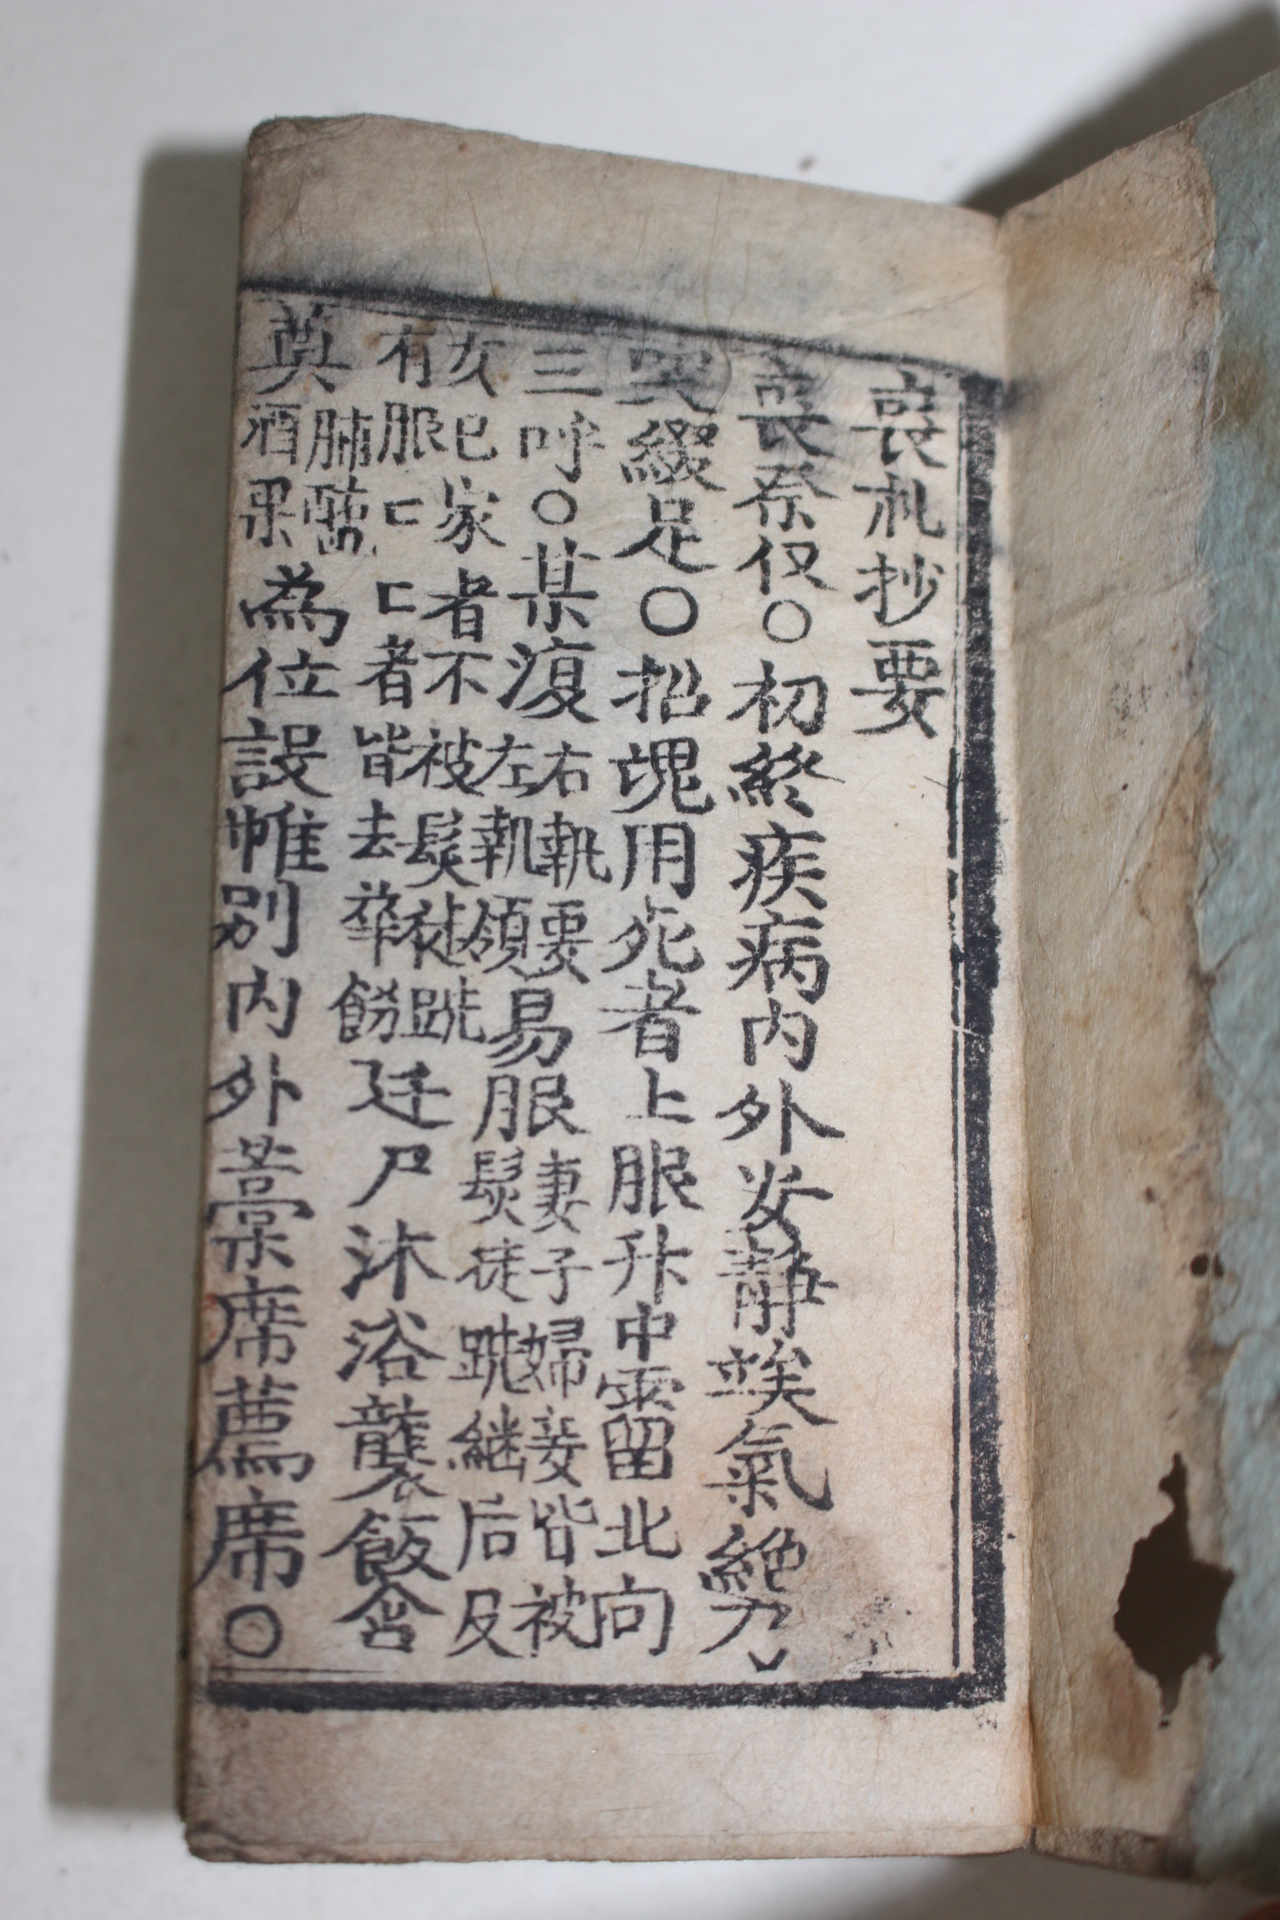 喪札抄要
喪祭仪○初終疾病內外安静竢氣絶乃
哭綴足○招魂用死者上服升中霤北向
三呼○某復右執要左執領易服妻子婦妾皆被髮徒跣継后及
女已家者不被髮徒跣有服匚匚者皆去華餙廷尸沐浴襲飯含
奠脯醢酒果為位設帷別內外藁席薦席○